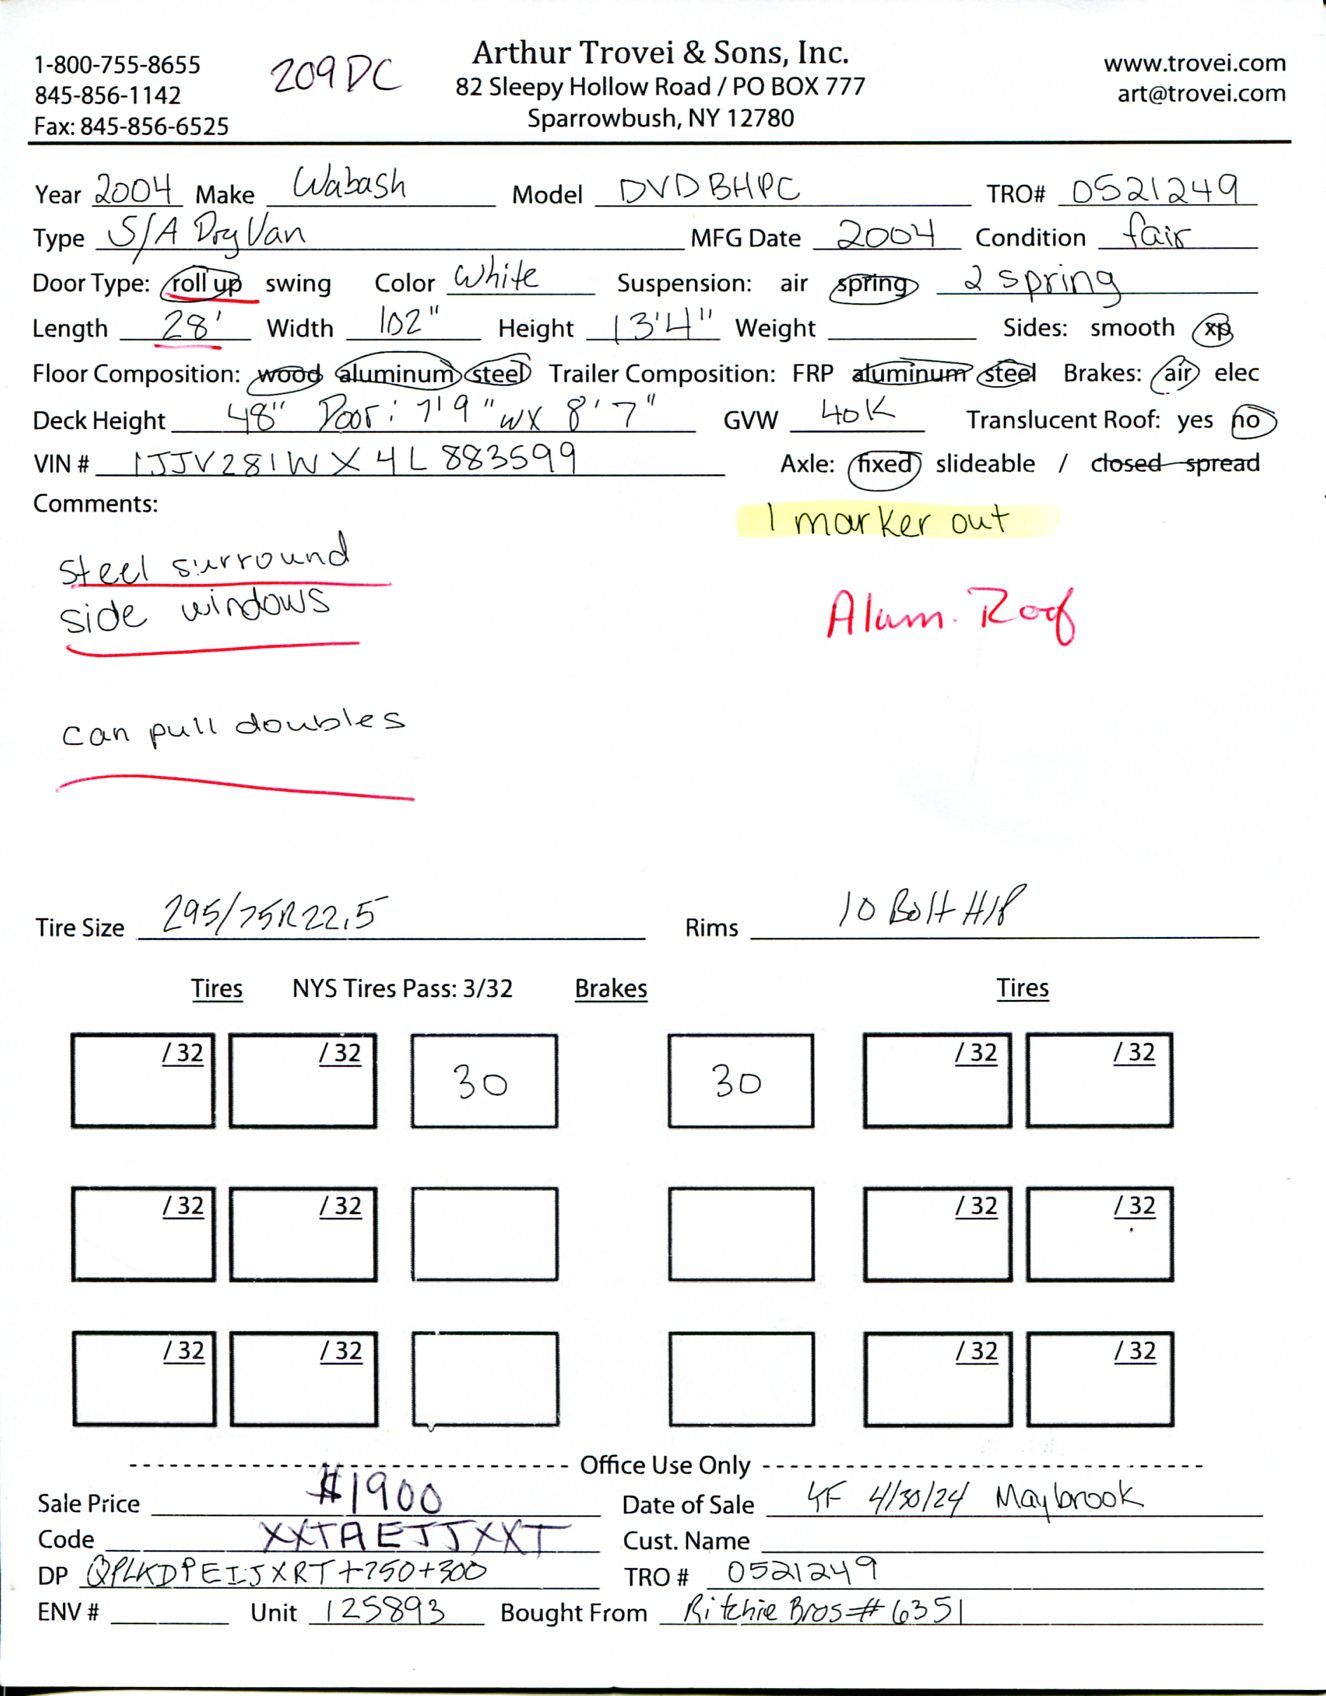 1-800-755-8655
845-856-1142
Fax: 845-856-6525
209DC
Arthur Trovei & Sons, Inc.
82 Sleepy Hollow Road / PO BOX 777
Sparrowbush, NY 12780
www.trovei.com
art@trovei.com
Year 2004 Make Wabash Model DVDBHPC TRO# 0521249
Type S/A Dry Van MFG Date 2004 Condition fair
Door Type: roll up swing Color White Suspension: air spring 2 spring
Length 28' Width 102" Height 13'4" Weight Sides: smooth xp
Floor Composition: wood aluminum steel Trailer Composition: FRP aluminum steel Brakes: air elec
Deck Height 48" Door: 7'9" w x 8'7" GVW 40K Translucent Roof: yes no
VIN # 1JJV281WX4L883599 Axle: fixed slideable / closed spread
Comments:
1 marker out
steel surround
side windows
Alum. Roof
can pull doubles
Tire Size 295/75R22.5 Rims 10 Bolt H/P
Tires NYS Tires Pass: 3/32 Brakes Tires
/ 32 / 32 30 30 / 32 / 32
/ 32 / 32 / 32 / 32
/ 32 / 32 / 32 / 32
Office Use Only
Sale Price $1900 Date of Sale 4/30/24 Maybrook
Code XXTAEJJXXT Cust. Name
DP QPLKDPEIJXRT+750+300 TRO # 0521249
ENV # Unit 125893 Bought From Ritchie Bros # 6351